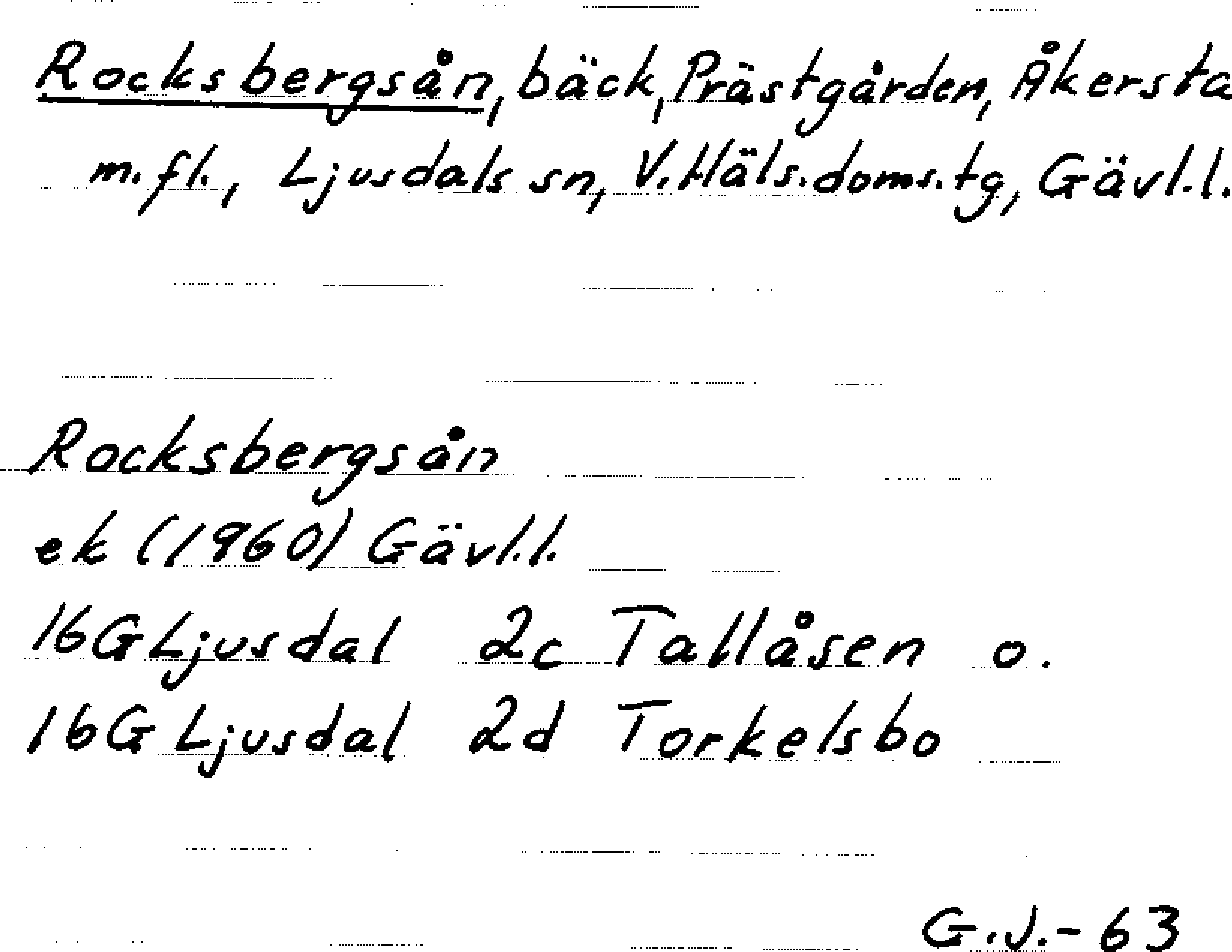 Rocksbergsån, bäck, Prästgården, Åkersta
m.fl., Ljusdals sn, V.Häls.doms.tg, Gävl.l.
Rocksbergsån
ek (1960) Gävl.l.
16G Ljusdal 2c Tallåsen o.
16G Ljusdal 2d Torkelsbo
G.J.-63